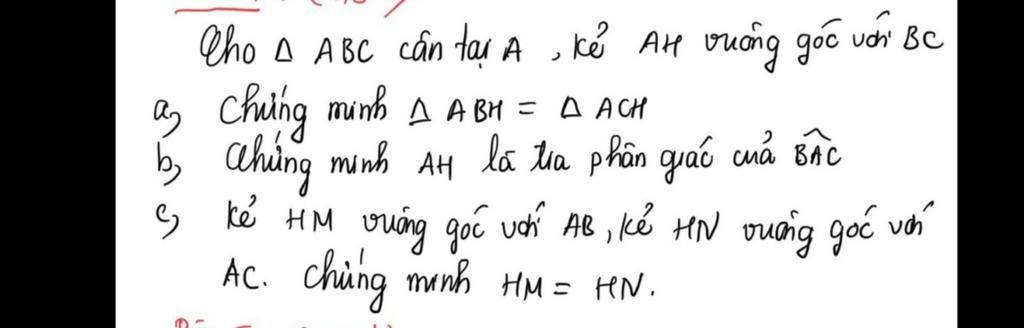 Cho Δ ABC cân tại A, kẻ AH vuông góc với BC
a) Chứng minh Δ ABH = Δ ACH
b) Chứng minh AH là tia phân giác của B̂AC
c) kẻ HM vuông góc với AB, kẻ HN vuông góc với
AC. Chứng minh HM = HN.